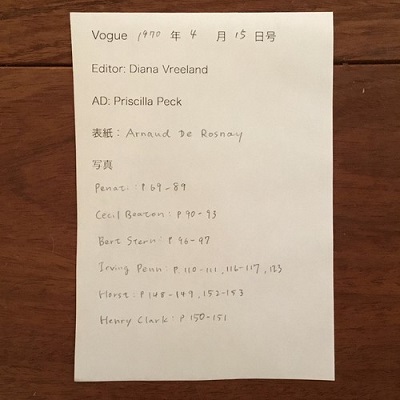 Vogue 1970 年 4 月 15 日号
Editor: Diana Vreeland
AD: Priscilla Peck
表紙：Arnaud De Rosnay
写真
Penati: P.69-89
Cecil Beaton: P.90-93
Bert Stern: P.96-97
Irving Penn: P.110-111, 116-117, 123
Horst: P.148-149, 152-153
Henry Clark: P.150-151